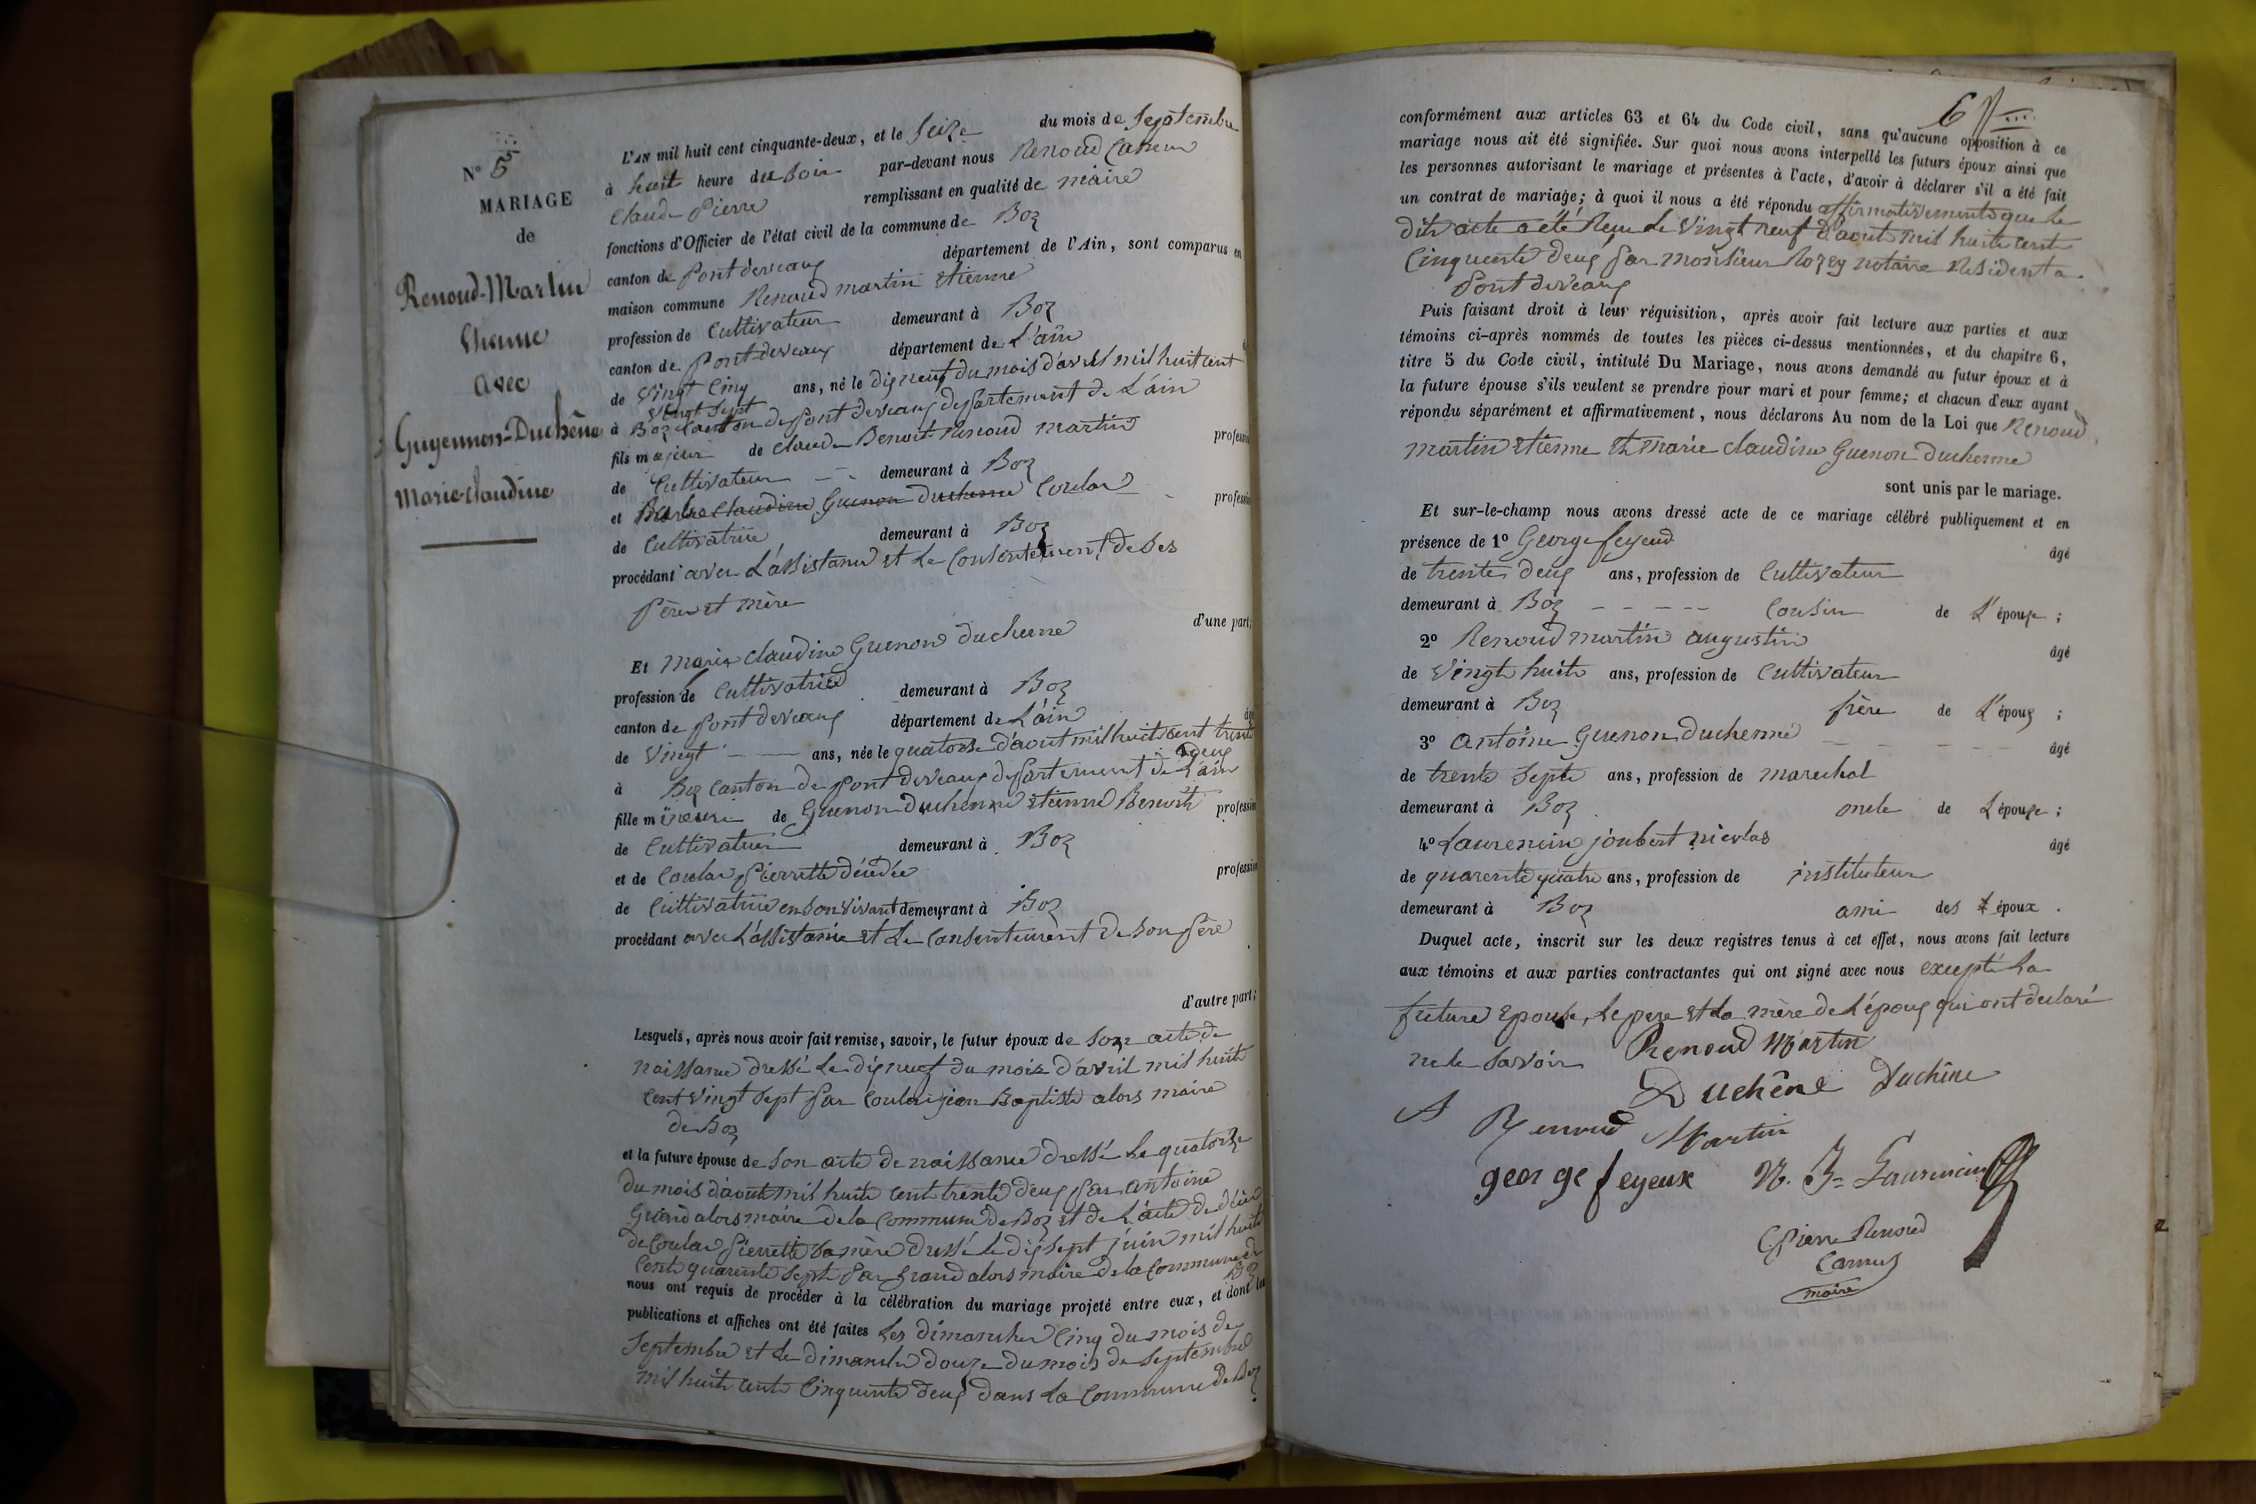 N° 5
MARIAGE
de
Renoud-Martin
Etienne
avec
Guyennon-Duchêne
Marie-claudine
L'AN mil huit cent cinquante-deux, et le Seize du mois de Septembre
à huit heure du Soir par-devant nous Renoud Camus
Claude Pierre remplissant en qualité de maire
fonctions d'Officier de l'état civil de la commune de Boz
canton de Pont devaux département de l'Ain, sont comparus en
maison commune Renoud martin etienne
profession de Cultivateur demeurant à Boz
canton de Pont devaux département de L'ain
de Vingt Cinq ans, né le dix neuf du mois d'avril mil huit cent
Vingt Sept
à Boz Canton de Pont devaux département de L'ain
fils majeur de Claude Benoit Renoud martin profession
de Cultivateur demeurant à Boz
et Claudine Guenon Duchenne Coulas profession
de Cultivatrice demeurant à Boz
procédant avec L'assistance et Le Consentement de Ses
Père et mère
d'une part;
Et marie Claudine Guenon duchenne
profession de Cultivatrice demeurant à Boz
canton de Pont devaux département de L'ain âgée
de Vingt ans, née le quatorze d'aout mil huit cent trente
deux
à Boz Canton de Pont devaux département de L'ain
fille mineure de Guenon Duchenne etienne Benoit profession
de Cultivateur demeurant à Boz
et de Coulas Pierrette décédée profession
de Cultivatrice en Son vivant demeurant à Boz
procédant avec L'assistance et Le Consentement de Son Père
d'autre part;
Lesquels, après nous avoir fait remise, savoir, le futur époux de Son acte de
naissance dressé Le dix neuf du mois d'avril mil huit
Cent Vingt Sept par Coulas jean Baptiste alors maire
de Boz
et la future épouse de Son acte de naissance dressé Le quatorze
du mois d'aout mil huit cent trente deux par antoine
alors maire de la Commune de Boz et de L'acte de décès
de Coulas Pierrette Sa mère dressé le dix Sept juin mil huit
Cent quarente Sept par alors maire de la Commune de
Boz
nous ont requis de procéder à la célébration du mariage projeté entre eux, et dont les
publications et affiches ont été faites Les dimanches Cinq du mois de
Septembre et Le dimanche douze du mois de Septembre
mil huit cent Cinquente deux dans La Commune de Boz
6
conformément aux articles 63 et 64 du Code civil, sans qu'aucune opposition à ce
mariage nous ait été signifiée. Sur quoi nous avons interpellé les futurs époux ainsi que
les personnes autorisant le mariage et présentes à l'acte, d'avoir à déclarer s'il a été fait
un contrat de mariage; à quoi il nous a été répondu affirmativement que Le
dit acte a été Reçu Le Vingt neuf d'aout mil huit cent
Cinquente deux par monsieur notaire Résident a
Pont devaux
Puis faisant droit à leur réquisition, après avoir fait lecture aux parties et aux
témoins ci-après nommés de toutes les pièces ci-dessus mentionnées, et du chapitre 6,
titre 5 du Code civil, intitulé Du Mariage, nous avons demandé au futur époux et à
la future épouse s'ils veulent se prendre pour mari et pour femme; et chacun d'eux ayant
répondu séparément et affirmativement, nous déclarons Au nom de la Loi que Renoud
martin etienne et marie claudine Guenon duchenne
sont unis par le mariage.
Et sur-le-champ nous avons dressé acte de ce mariage célébré publiquement et en
présence de 1° George feyeux âgé
de trente deux ans, profession de Cultivateur
demeurant à Boz Cousin de L'épouse;
2° Renoud martin augustin âgé
de Vingt huit ans, profession de Cultivateur
demeurant à Boz frère de L'époux;
3° antoine Guenon Duchenne âgé
de trente Sept ans, profession de marechal
demeurant à Boz oncle de L'épouse;
4° Laurencin joubert nicolas âgé
de quarente quatre ans, profession de instituteur
demeurant à Boz ami des époux.
Duquel acte, inscrit sur les deux registres tenus à cet effet, nous avons fait lecture
aux témoins et aux parties contractantes qui ont signé avec nous excepté La
future epouse, Le pere et La mère de L'époux qui ont declaré
ne le Savoir Renoud Martin
Duchêne Duchêne
A Renoud Martin
george feyeux N. J= Laurencin
C Pierre Renoud
Camus
maire